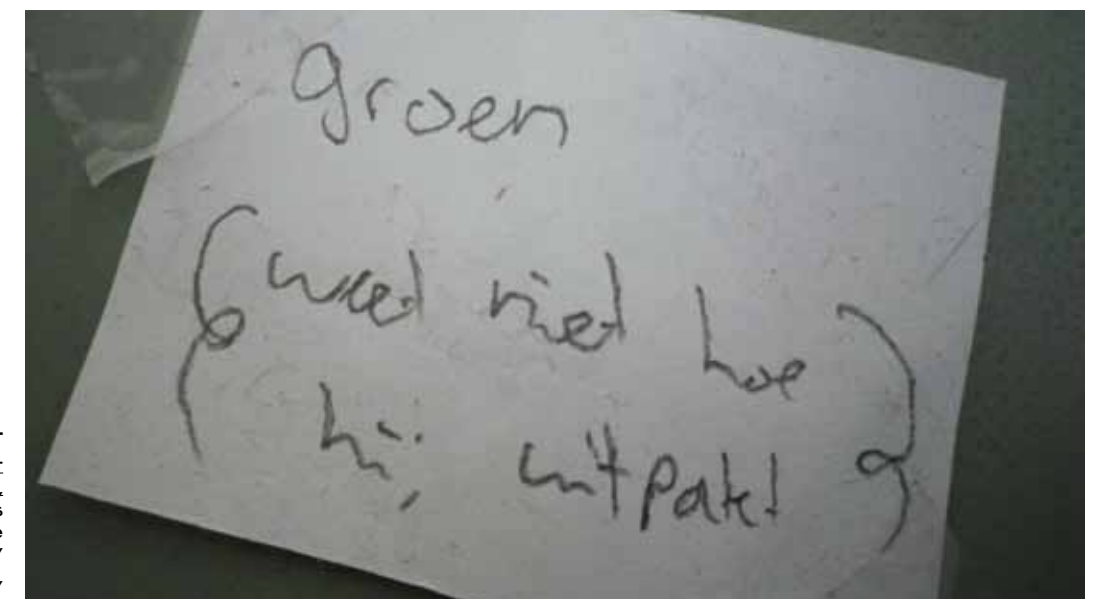 groen
(weet niet hoe
hij uitpakt)